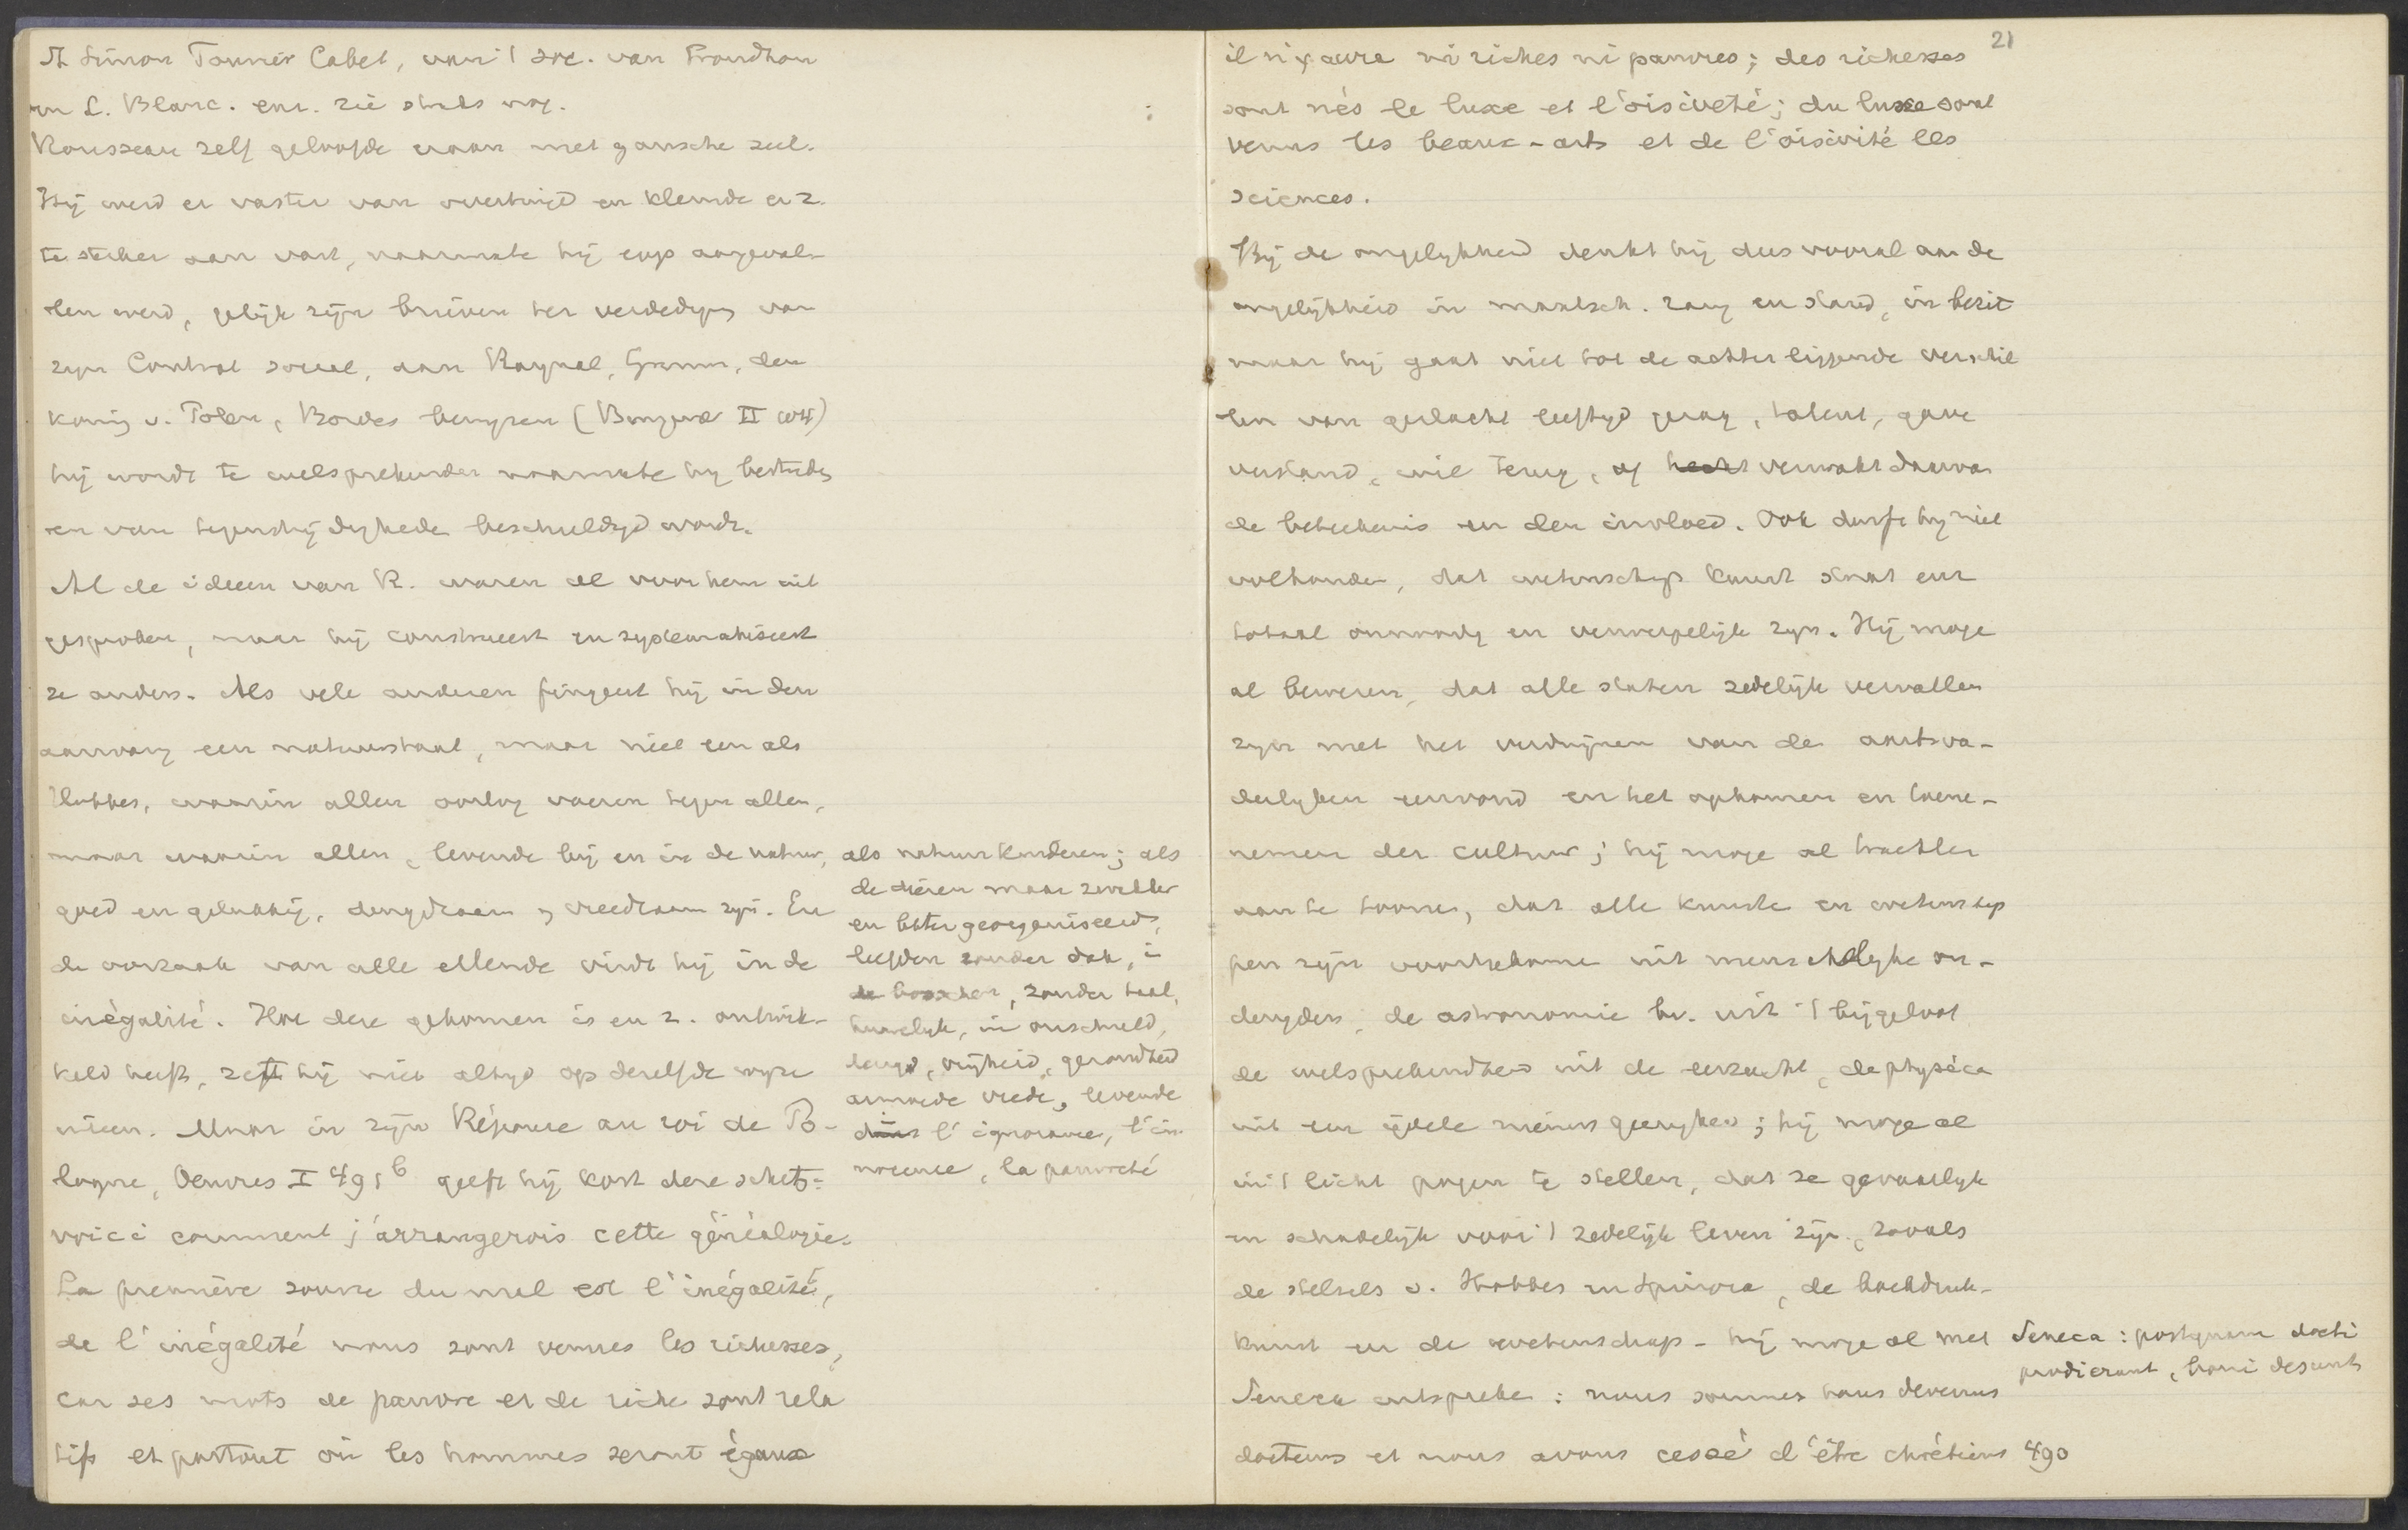 St Simon Fourier Cabet, van 't soc. van Proudhon
en L. Blanc. enz. zie straks nog.
Rousseau zelf geloofde eraan met gansche ziel.
Hij werd er vaster van overtuigd en klemde er z.
te sterker aan vast, naarmate hij erop aangeval-
len werd, gelijk zijn brieven ter verdedig. van
zijn Contrat social, aan Raynal, Grimm, den
koning v. Polen, Bordes bewijzen (Bungener II 204)
hij wordt te welsprekender naarmate hij bestreden
en van tegenstrijdigheden beschuldigd wordt.
Al de ideeen van R. waren al voor hem uit
gesproken, maar hij construeert en systematiseert
ze anders. Als vele anderen fingeert hij in den
aanvang een natuurstaat, maar niet een als
Hobbes, waarin allen oorlog voeren tegen allen,
maar waarin allen, levende bij en in de natuur,
goed en gelukkig, deugdzaam en vreedzaam zijn. En
de oorzaak van alle ellende vindt hij in de
inégalité. Hoe deze gekomen is en z. ontwik-
keld heeft, zet hij niet altijd op dezelfde wijze
uiteen. Maar in zijn Réponse au roi de Po-
logne, Oeuvres I 491 b geeft hij kort deze schets:
voici comment j'arrangerois cette généalogie.
La première source du mal est l'inégalité,
de l'inégalité nous sont venues les richesses,
car ses mots de pauvre et de riche sont rela
tifs et partout où les hommes seront égaux
als natuurkinderen; als
de dieren maar zwakker
en beter georganiseerd,
leefden zonder dak, in
de bosschen, zonder taal,
huwelijk, in onschuld,
deugd, vrijheid, gezondheid
armoede vrede, levende
dans l'ignorance, l'in-
nocence, la pauvreté
21
il n'y aura ni riches ni pauvres; des richesses
sont nés le luxe et l'oisiveté; du luxe sont
venus les beaux-arts et de l'oisivité les
sciences.
Bij de ongelijkheid denkt hij dus vooral aan de
ongelijkheid in maatsch. rang en stand, in bezit
maar hij gaat niet tot de achter liggende verschil
len van geslacht leeftijd gezag, talent, gave
verstand, wil terug, of hecht verwaarl daarvan
de beteekenis en den invloed. Ook durft hij niet
volhouden, dat wetenschap kunst staat enz
totaal onnoodig en verwerpelijk zijn. Hij moge
al beweren, dat alle staten zedelijk vervallen
zijn met het verdwijnen van de aartsva-
derlijken eenvoud en het opkomen en toene-
nemen der cultuur; hij moge al trachten
aan te toonen, dat alle kunsten en wetenschap
pen zijn voortgekomen uit menschelijke on-
deugden, de astronomie bv. uit 't bijgeloof
de welsprekendheid uit de eerzucht, de physica
uit een ijdele nieuwsgierigheid; hij moge al
in 't licht pogen te stellen, dat ze gevaarlijk
en schadelijk voor 't zedelijk leven zijn, zooals
de stelsels v. Hobbes en Spinoza, de boekdruk-
kunst en de wetenschap - hij moge al met
Seneca uitspreken: nous sommes tous devenus
docteurs et nous avons cessé d'être chrétiens 490
Seneca: postquam docti
prodierunt, boni desunt